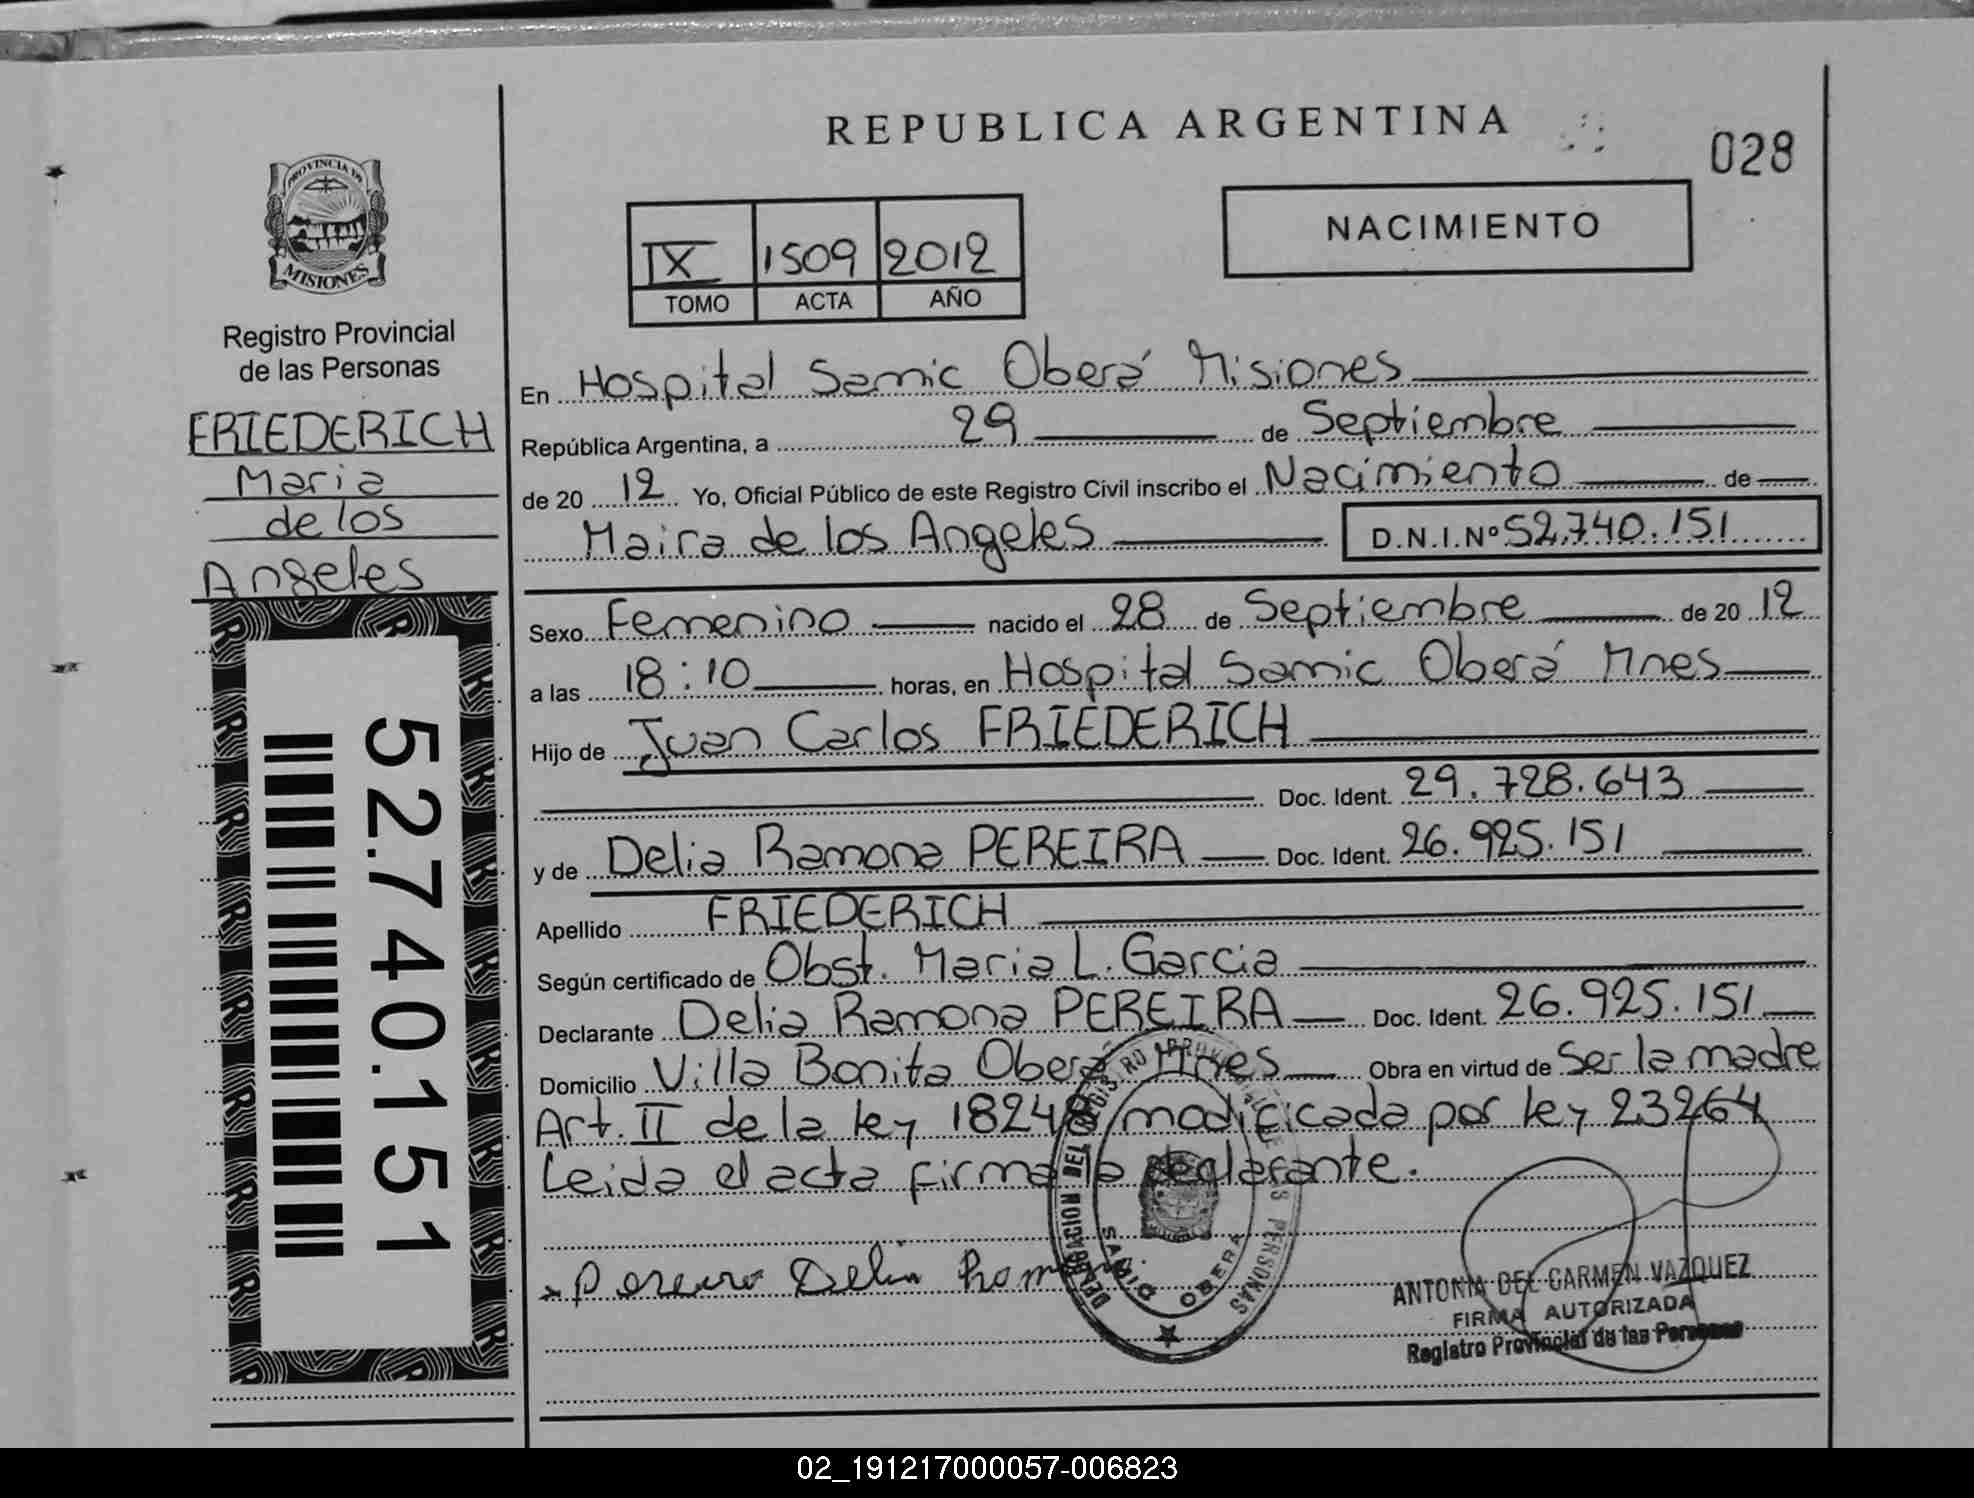 REPUBLICA ARGENTINA
028
PROVINCIA DE
MISIONES
Registro Provincial
de las Personas
FRIEDERICH
Maria
de los
Angeles
52.740.151
IX 1509 2012
TOMO ACTA AÑO
NACIMIENTO
En Hospital Samic Oberá Misiones
República Argentina, a 29 de Septiembre
de 20 12 Yo, Oficial Público de este Registro Civil inscribo el Nacimiento de
Maira de los Angeles D.N.I.Nº 52.740.151
Sexo Femenino nacido el 28 de Septiembre de 20 12
a las 18:10 horas, en Hospital Samic Oberá Mnes
Hijo de Juan Carlos FRIEDERICH
Doc. Ident. 29.728.643
y de Delia Ramona PEREIRA Doc. Ident. 26.925.151
Apellido FRIEDERICH
Según certificado de Obst. Maria L. Garcia
Declarante Delia Ramona PEREIRA Doc. Ident. 26.925.151
Domicilio Villa Bonita Oberá Mnes Obra en virtud de Ser la madre
Art. II de la ley 18248 modificada por ley 23264
Leida el acta firma la declarante.
Pereira Delia
SAMIC OBERA
ANTONIA DEL CARMEN VAZQUEZ
FIRMA AUTORIZADA
Registro Provincial de las Personas
02_191217000057-006823